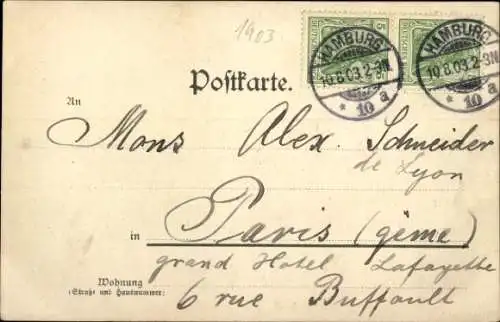 1903
5
HAMBURG
10.8.03.2-3N
* 10 a
HAMBURG
10.8.03.2-3N
* 10 a
Postkarte.
An
Mons Alex. Schneider
de Lyon
in Paris (9ème)
grand Hotel Lafayette
Wohnung
(Straße und Hausnummer)
6 rue Buffault